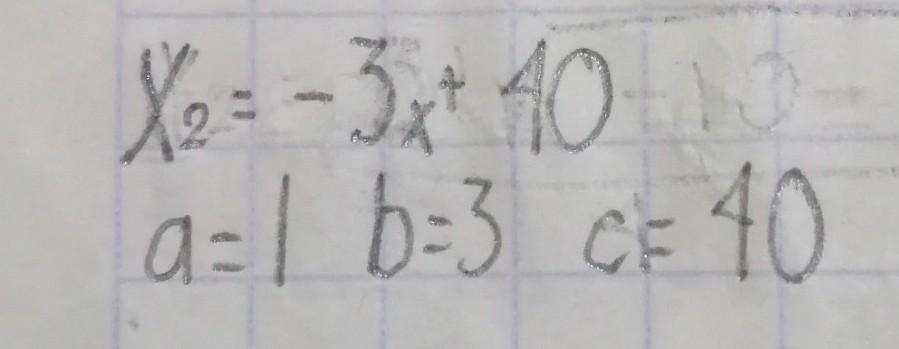 X₂ = -3x + 40
a = 1 b = 3 c = 40